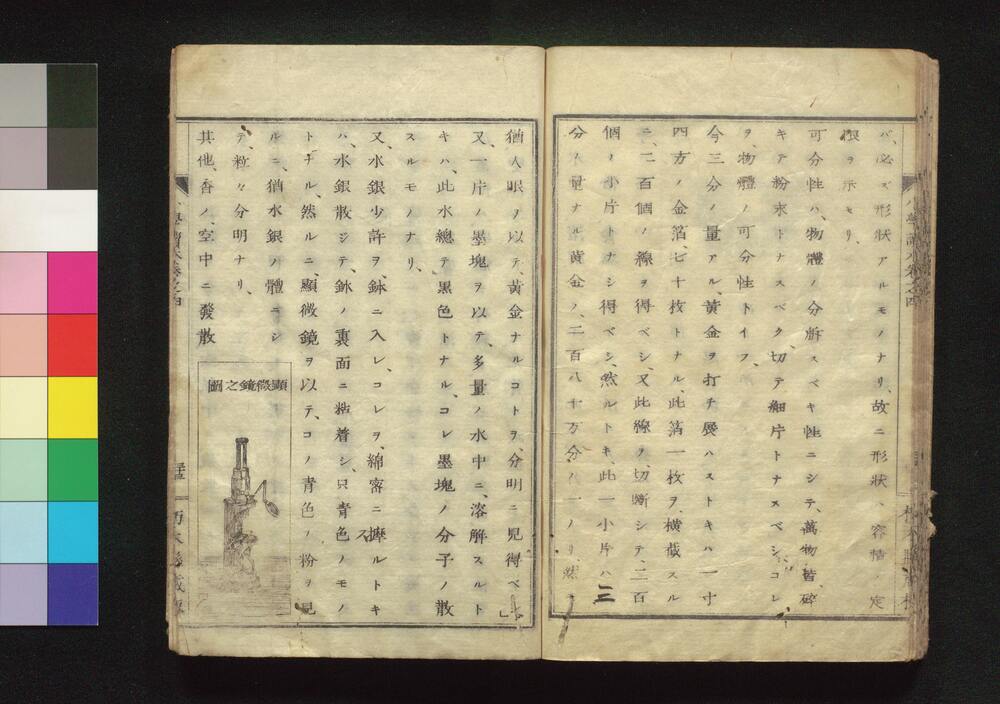 バ、必ズ形狀アルモノナリ、故ニ形狀ハ容積ノ定
限ヲ示セリ、
可分性ハ、物體ノ分解スベキ性ニシテ、萬物皆、碎
キテ粉末トナスベク、切テ細片トナスベシ、コレ
ヲ、物體ノ可分性トイフ、
今三分ノ量アル、黄金ヲ打チ展ハストキハ一寸
四方ノ金箔、七十枚トナル、此箔一枚ヲ、橫截スル
ニ、二百個ノ線ヲ得ベシ、又此線ヲ、切斷シテ、二百
個ノ小片トナシ得ベシ、然ルトキ、此一小片ハ
分ノ量ナル黄金ノ、二百八十万分ノ一ナリ、然
三
猶人眼ヲ以テ、黄金ナルコトヲ、分明ニ見得ベシ
又、一片ノ墨塊ヲ以テ、多量ノ水中ニ、溶解スルト
キハ、此水總テ、黒色トナル、コレ墨塊ノ分子ノ散
スルモノナリ、
又、水銀少許ヲ、鉢ニ入レ、コレヲ、綿密ニ摩スルトキ
ハ、水銀散ジテ、鉢ノ裏面ニ粘着シ、只青色ノモノ
トナル、然ルニ、顯微鏡ヲ以テ、コノ青色ノ粉ヲ見
ルニ、猶水銀ノ體ニシ
テ、粒々分明ナリ、
其他、香ノ、空中ニ發散
顯微鏡之圖